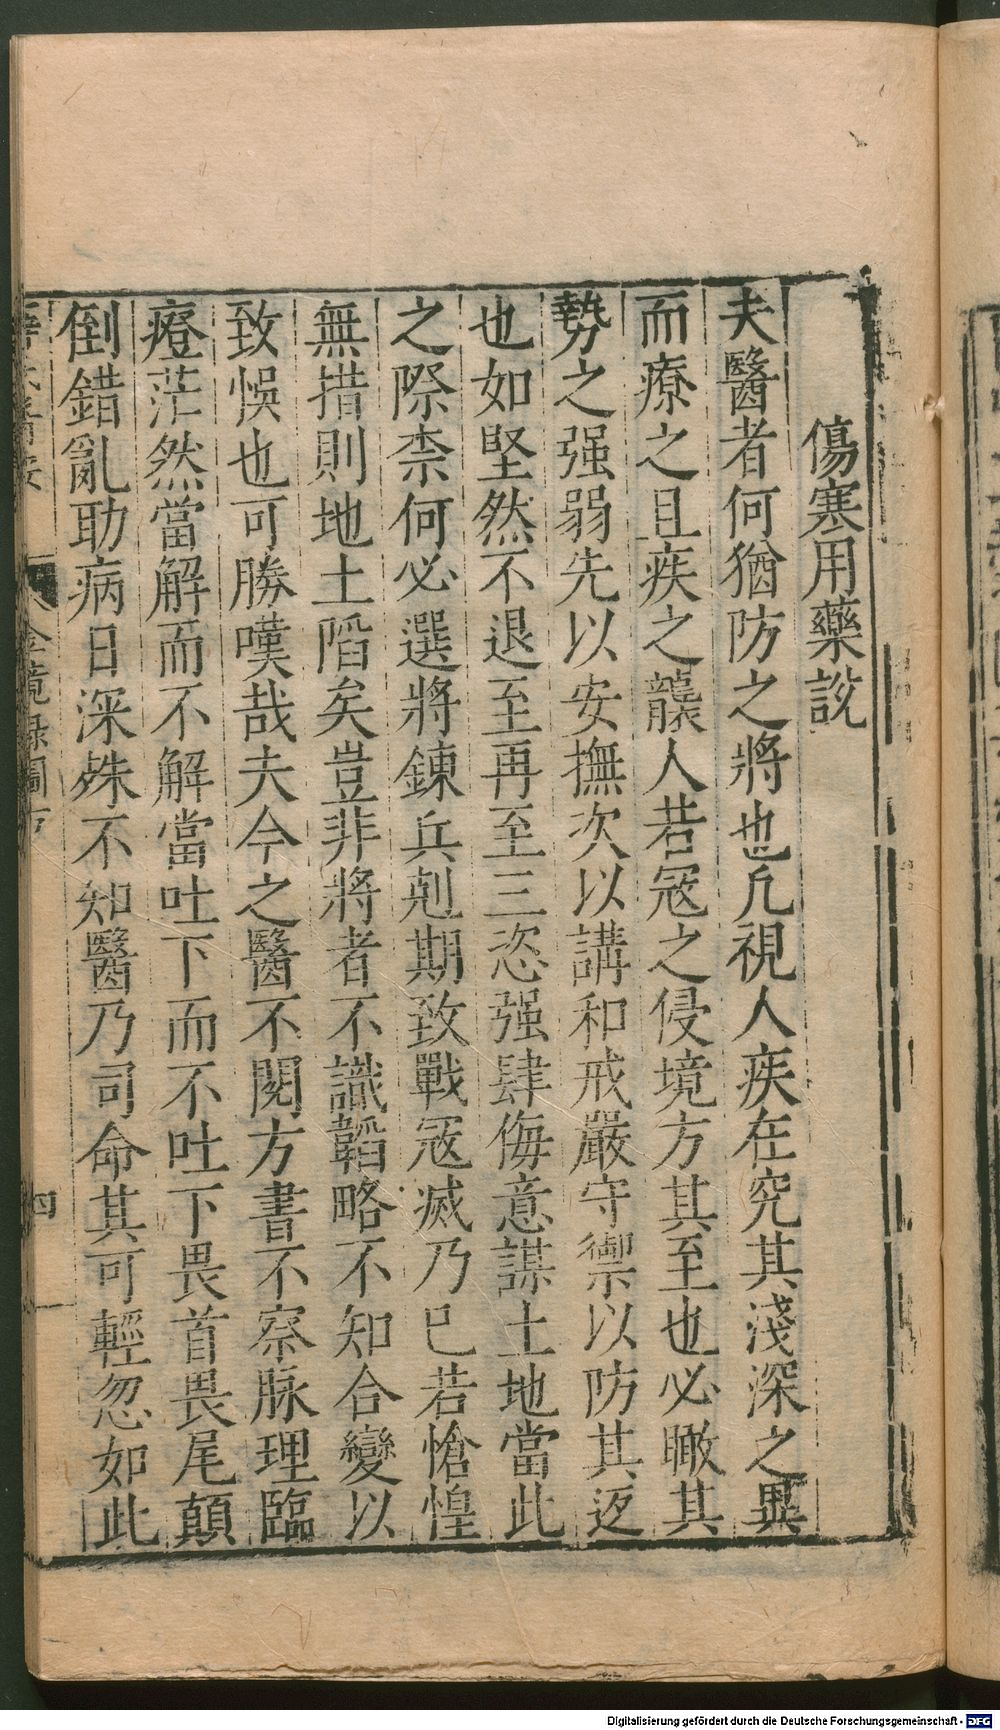 傷寒用藥說
夫醫者何猶防之將也凢視人疾在究其淺深之異
而療之且疾之龍衣人若㓂之侵境方其至也必瞰其
勢之强弱先以安撫次以講和戒嚴守禦以防其返
也如堅然不退至再至三恣强肆侮意謀土地當此
之際柰何必選將錬兵剋期致戰㓂滅乃已若愴惶
無措則地土陷矣豈非將者不識韜略不知合變以
致悞也可勝嘆哉夫今之醫不閱方書不察脉理臨
症茫然當解而不解當吐下而不吐下畏首畏尾顛
倒錯亂助病日深殊不知醫乃司命其可輕忽如此
金鏡錄
四
Digitalisierung gefördert durch die Deutsche Forschungsgemeinschaft - DFG